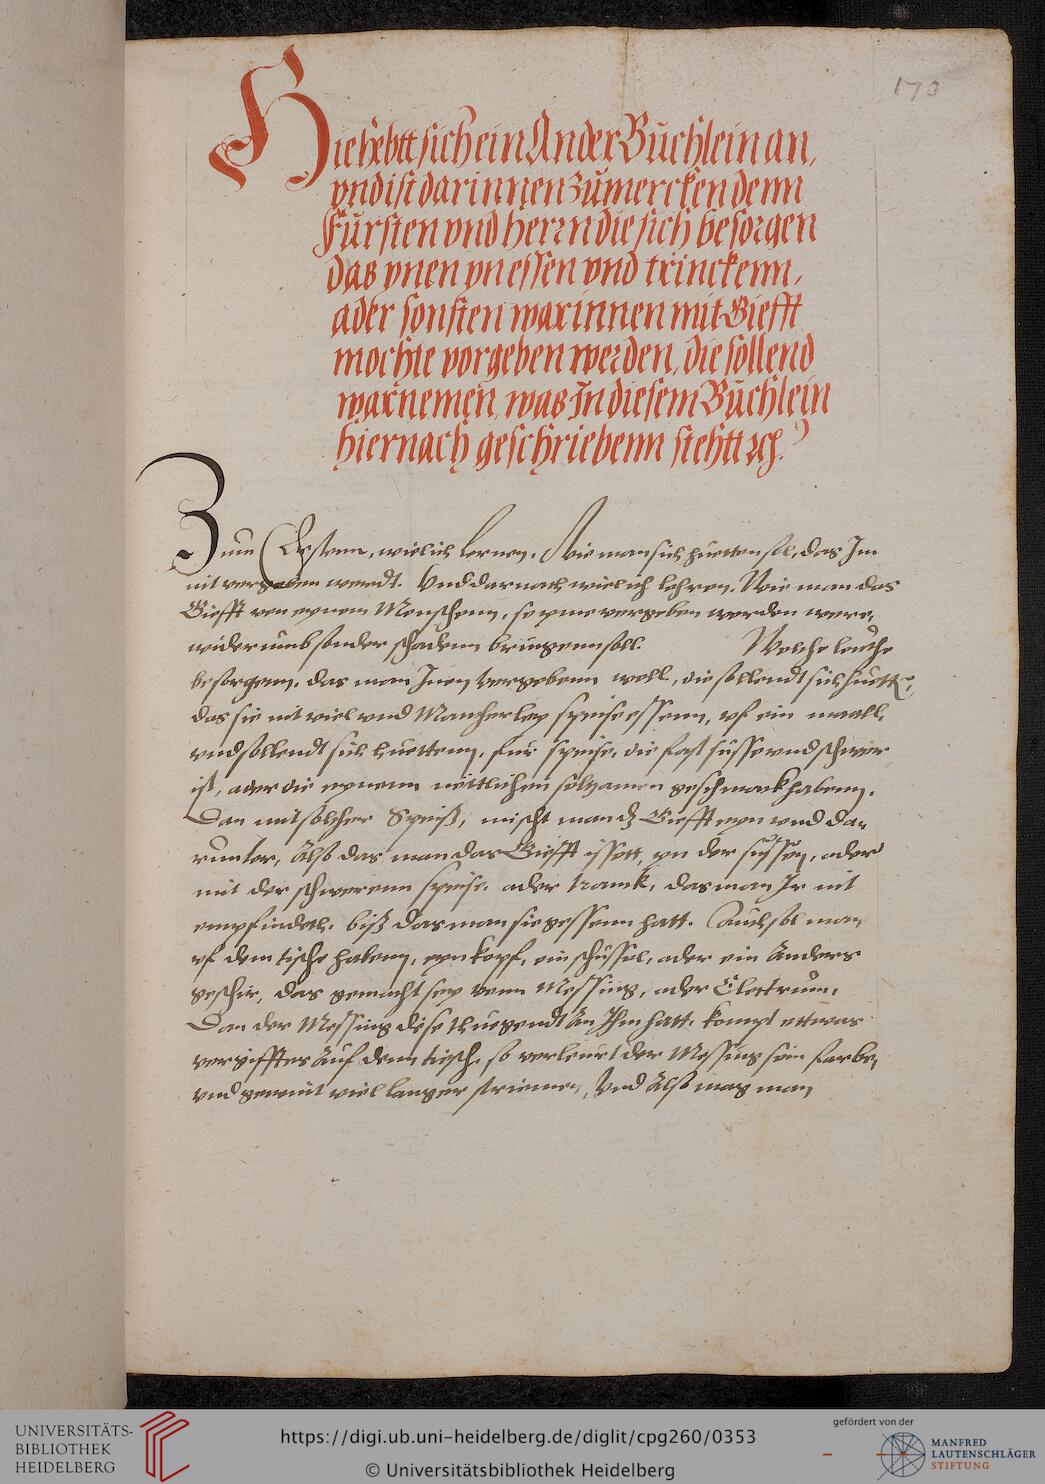 170
Hiehebtt sich ein Ander Büchlein an,
vnd ist darinnen zůmercken denn
Fürsten vnd herrn die sich besorgen
das ynen yn essen vnd trinckenn,
ader sonsten warinnen mit Giefft
mochte vorgeben werden, die sollend
warnemen, was In diesem Büchlein
hiernach geschriebenn stehtt
Zum Erstenn, wiel ich lernen, Wie man sich huetten sol, das Im
nit vergeben werdt. Vnd darnach wiel ich lehren, Wie man das
Giefft von eynem Menschenn, so yme vergeben worden were,
widerumb sonder schadenn bringenn soll. Welche leuthe
besorgenn, das man Inen vergebenn woll, die sollendt sich huetten,
das sie nit viel vnd Mancherley speise essenn, vf ein maall,
vnd sollendt sich huettenn, für speise, die fast süsse vnd schwer
ist, ader die eynenn seltzamen geschmack habenn.
Dan mit solcher Speiß, mischt man dz Giefft eyn vnd da-
runter, Alß das man das Giefft issett, yn der süssen, ader
mit der schwerenn speise, ader tranck, das man Ir nit
empfindeth, biß das man sie gessenn hatt. Auch sol man
vf dem tische habenn, eyn kopf, ein schüssel, ader ein Anders
geschir, das gemacht sey vonn Messing, ader Electrum,
Dan der Messing diese thuegendt An Ihm hatt, kompt ettwas
vergifftes Auf denn tiesch, so verleurt der Messing sein farbe,
vnd gewint viel langer striemen, Vnd Alß mag man
UNIVERSITÄTS-
BIBLIOTHEK
HEIDELBERG
https://digi.ub.uni-heidelberg.de/diglit/cpg260/0353
© Universitätsbibliothek Heidelberg
gefördert von der
MANFRED
LAUTENSCHLÄGER
STIFTUNG